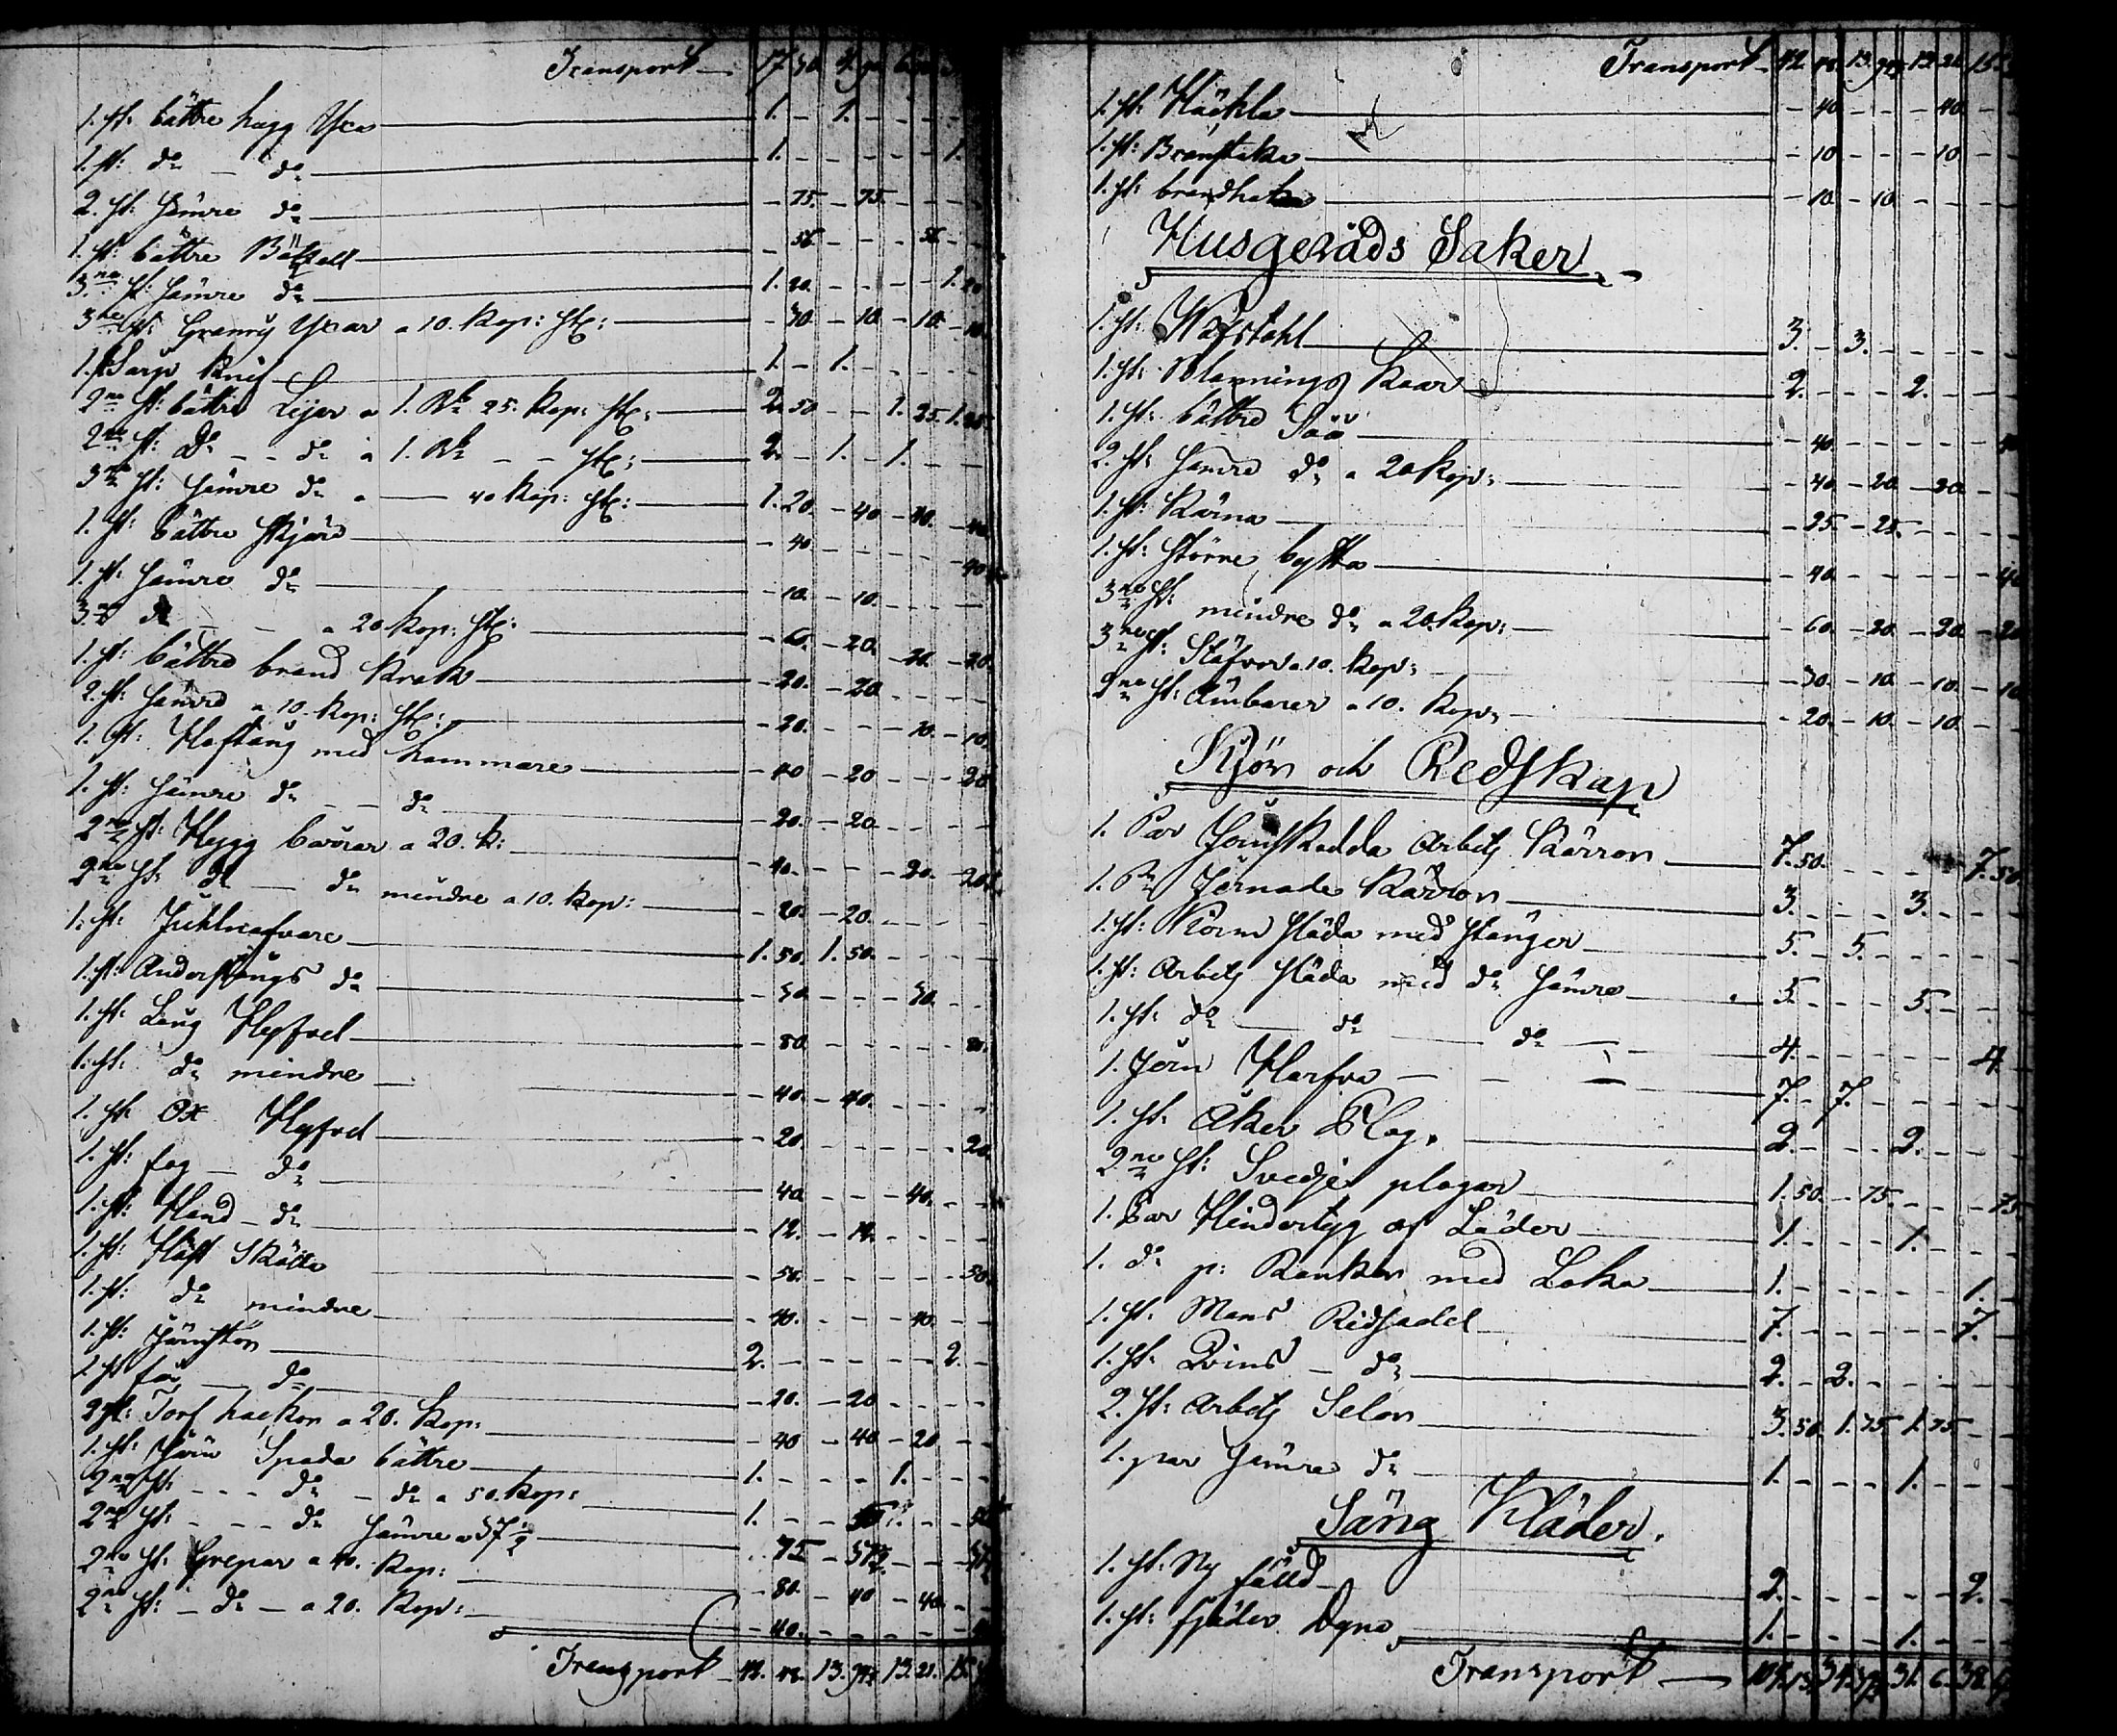 Transport — 17. 30.
1. st: bättre hugg Yxa — 1. – 1. – – –
1. st: do – do — 1. – – – – – 1.
2. st: sämre do — – 75. – 75. – – –
1. st: bättre — – 56. – – – 56. – –
3ne st: sämre do — 1. 20. – – – – 1. 20
3ne st: Yxar a 10. Kop: st: — – 30. – 10. – 10. – 10.
1. st Knif — 1. – 1. – – –
2ne st: bättre Lijor a 1. Rb 25. Kop: st: — 2. 50 – – 1. 25. 1. 25.
2ne st: do – – do a 1. Rb – – st: — 2. – 1. – 1. – –
3ne st: sämre do a — 40 Kop: st: — 1. 20. – 40 – 40. – 40.
1. st: bättre — – 40. – – – – – 40
1. st: sämre do — – 10. – 10. – – –
3ne do – – a 20. Kop: st: — – 60. – 20. – 20. – 20.
1. st: bättre brand Krok — – 20. – 20 – – –
2. st: sämre a 10. Kop: st: — – 20. – – – 10. – 10.
1. st: Hoftång med hammare — – 40 – 20 – – – 20
1. st: sämre do – – do — – 20. – 20. – – –
2ne st: Hygg a 20. k: — – 40. – – – 20. – 20.
2ne st: do — do mindre a 10. Kop: — – 20. – 20. – – –
1. st: — 1. 50. 1. 50. – – –
1. st: do — – 30. – – – 30. – –
1. st: Lång Hyfvel — – 80. – – – – – 80.
1. st: do mindre — – 40. – 40. – – –
1. st: Ox Hyfvel — – 20. – – – – – 20.
1. st: fog – do — – 40. – – – 40. – –
1. st: Hand – do — – 12. – 12. – – –
1. st: — – 50. – – – – – 50.
1. st: do mindre — – 40. – – – 40. – –
1. st: — 2. – – – – – 2. –
1. st do — – 20. – 20 – – –
2 st: Torf hackor a 20. Kop: — – 40 – 40 – 20 – –
1. st: Järn Spada bättre — 1. – – – 1. – –
2ne st: – – – do – do a 50. Kop: — 1. – – 50
2ne st: – – – do sämre a 37½ — 75 – 37½ – – – 37½
2ne st: Grepar a 40. Kop: — – 80. – 40 – 40. – –
2ne st: – do – a 20. Kop: — – 40. – – – –
Transport — 42. 48. 13. 13. 21. 15.
Transport — 42. 48. 13. 13. 21. 15.
1. st: Häckla — – 40. – – – 40. – –
1. st: — – 10. – – – 10. – –
1. st: brandhake — – 10. – 10. – – –
Husgeråds Saker
1. st: Wäfstohl — 3. – 3. – – –
1. st: Kaar — 2. – – – 2. – –
1. st: bättre Såå — – 40. – – – – – 40
2. st: sämre do a 20 Kop: — – 40. – 20. – 20. – –
1. st: Kärna — – 25. – 25. – – –
1. st: större bytta — – 40. – – – – – 40
3ne st: mindre do a 20. Kop: — – 60. – 20. – 20. – 20
3ne st: Stäfvor a 10. Kop: — – 30. – 10. – 10. – 10
2ne st: Ämbarer a 10. Kop: — – 20. – 10. – 10. – –
Kjör och Redskap
1. Par Jernskodda Arbets Kärror — 7. 50. – – – – 7. 50.
1. Pr Jernade Kärror — 3. – – – 3. – –
1. st: släda med stänger — 5. – 5. – – –
1. st: Arbets släda med do sämre — 5. – – – 5. – –
1. st: do — do — do — 4. – – – – – 4.
1. Jern Harfva — 7. – 7. – – –
1. st: Åker Plog. — 2. – – – 2. – –
2ne st: Svedje plogar — 1. 50. – 75. – – – 75
1. Par Hindertyg af Läder — 1. – – – 1. – –
1. do p: Rankor med Loka — 1. – – – – – 1.
1. st: Mans Ridsadel — 7. – – – – – 7.
1. st: Qvins – do — 2. – 2. – – –
2. st: Arbets Selar — 3. 50. 1. 75. 1. 75. – –
1. par sämre do — 1. – – – 1. – –
Säng Kläder.
1. st: Ny fälld — 2. – – – – – 2. –
1. st: fjäder Dyna — 1. – – – 1. – –
Transport — 31. 6. 38.